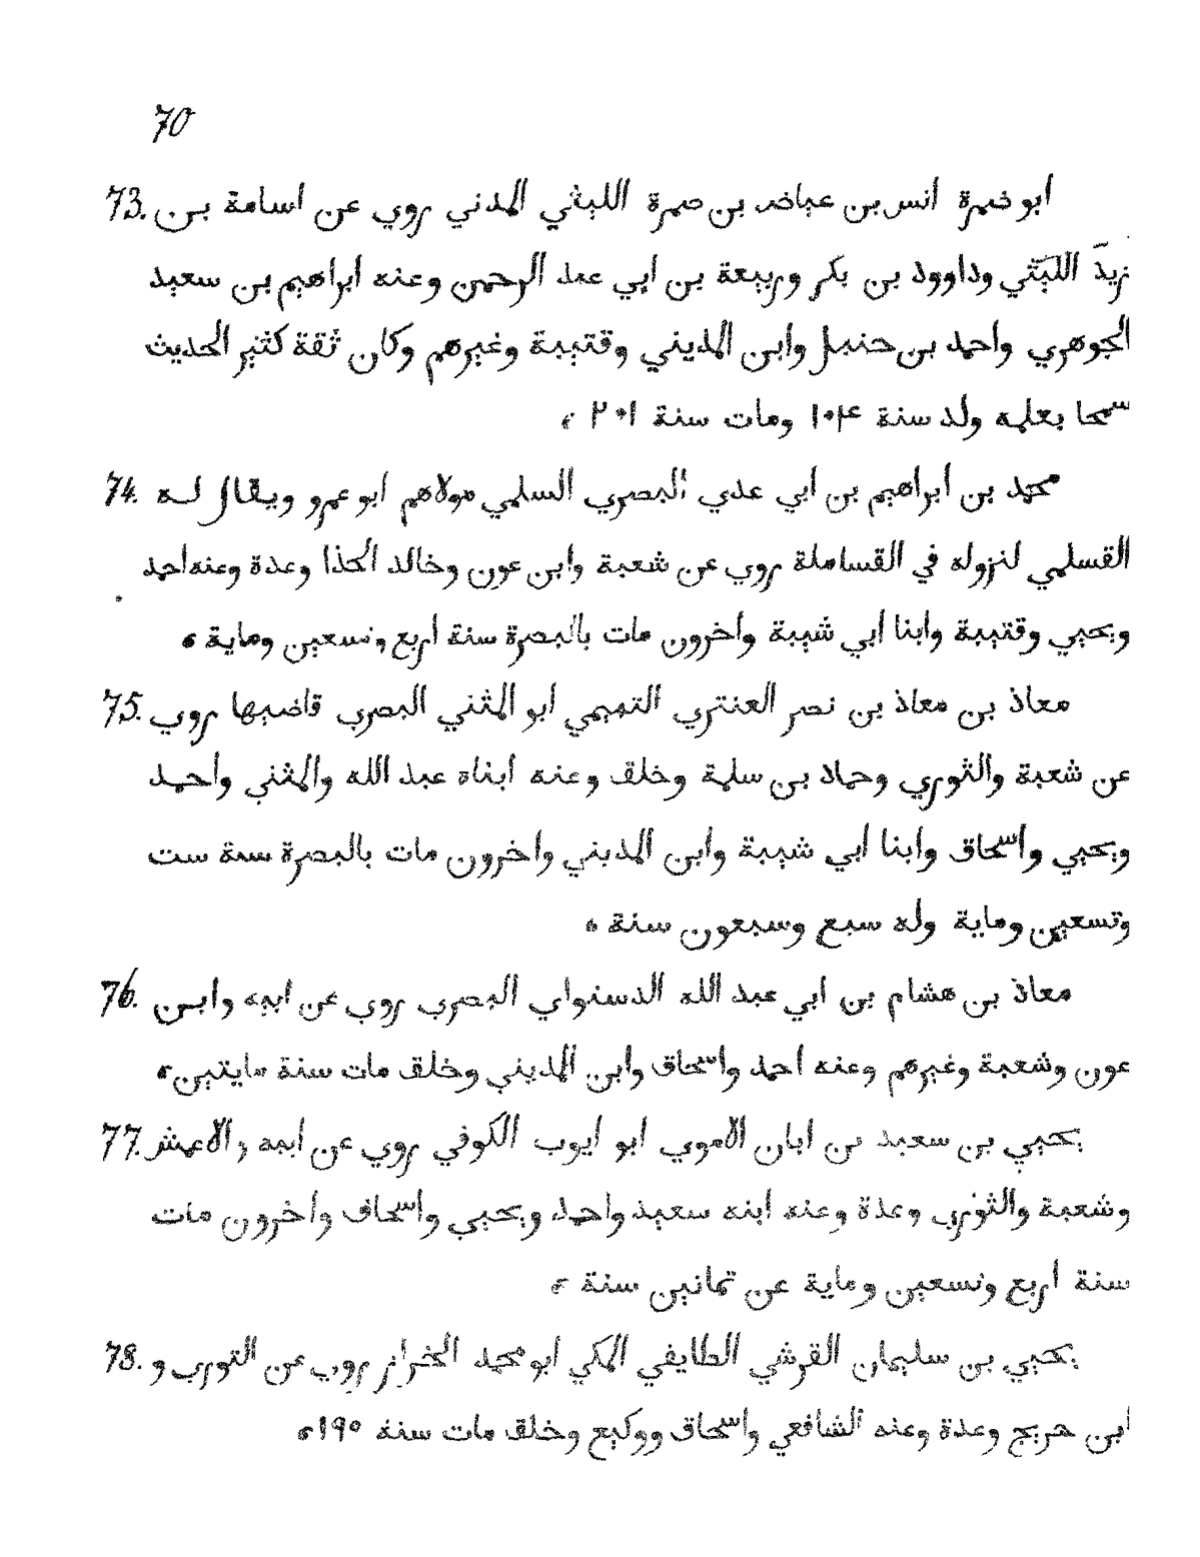 70
73. ابو ضمرة انس بن عياض بن صمرة الليثي المدني روي عن اسامة بن
زيد الليثي وداوود بن بكر وربيعة بن ابي عبد الرحمن وعنه ابراهيم بن سعيد
الجوهري واحمد بن حنبل وابن المديني وقتيبة وغيرهم وكان ثقة كثير الحديث
سمحا بعلمه ولد سنة ١٠٤ ومات سنة ٢٠١
74. محمد بن ابراهيم بن ابي عدي البصري السلمي مولاهم ابو عمرو ويقال له
القسلمي لنزوله في القساملة روي عن شعبة وابن عون وخالد الحذا وعدة وعنه احمد
ويحيي وقتيبة وابنا ابي شيبة واخرون مات بالبصرة سنة اربع وتسعين وماية
75. معاذ بن معاذ بن نصر العنتري التميمي ابو المثني البصري قاضيها روي
عن شعبة والثوري وحماد بن سلمة وخلق وعنه ابناه عبد الله والمثني واحمد
ويحيي واسحاق وابنا ابي شيبة وابن المديني واخرون مات بالبصرة سنة ست
وتسعين وماية وله سبع وسبعون سنة
76. معاذ بن هشام بن ابي عبد الله الدستواي البصري روي عن ابيه وابن
عون وشعبة وغيرهم وعنه احمد واسحاق وابن المديني وخلق مات سنة مايتين
77. يحيي بن سعيد بن ابان الاموي ابو ايوب الكوفي روي عن ابيه والاعمش
وشعبة والثوري وعدة وعنه ابنه سعيد واحمد ويحيي واسحاق واخرون مات
سنة اربع وتسعين وماية عن ثمانين سنة
78. يحيي بن سليمان القرشي الطايفي المكي ابو محمد الخراز روي عن الثوري و
ابن جريج وعدة وعنه الشافعي واسحاق ووكيع وخلق مات سنة ١٩٥